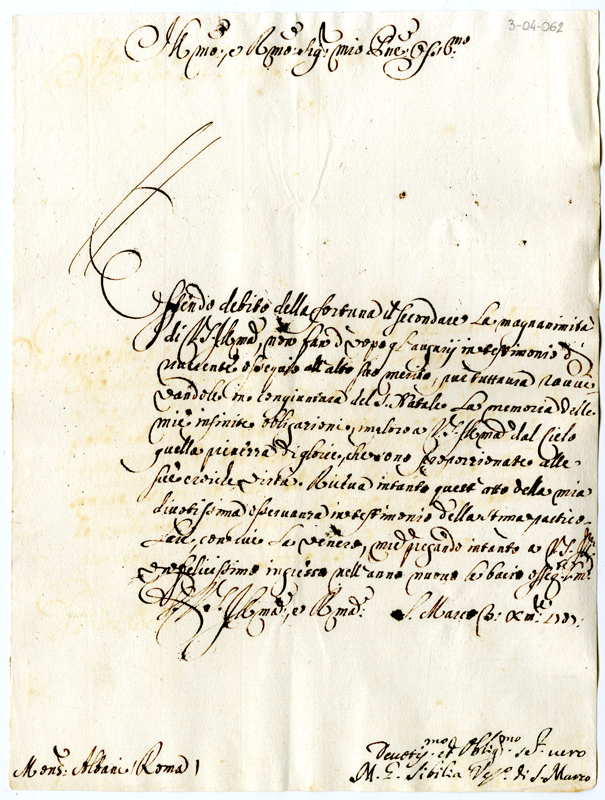 3-04-062
Ill.mo, e R.mo Sig.r mio P.ne Oss.mo
Essendo debito della fortuna il secondare la magnanimità
di V.S. Ill.ma, non farò d'uopo gl'augurij in testimonio di
riverente ossequio all'alto suo merito; pure tuttavia ravvi-
vandole in congiuntura del S. Natale la memoria delle
mie infinite obligazioni, imploro a V.S. Ill.ma dal Cielo
quella pienezza di glorie, che sono proporzionate alle
sue eroiche virtù. Riceva intanto quest'atto della mia
divotissima osservanza in testimonio della stima partico-
lare con cui la venero, mentre pregando intanto a V.S. Ill.ma
un felicissimo ingresso nell'anno nuovo le bacio osseq.te le m.
Di V.S. Ill.ma, e R.ma S. Marco X.bre
Devotis.mo et Oblig.mo Ser. vero
M. L. Sibilia Vesc.o di S. Marco
Mons.r Albani (Roma)